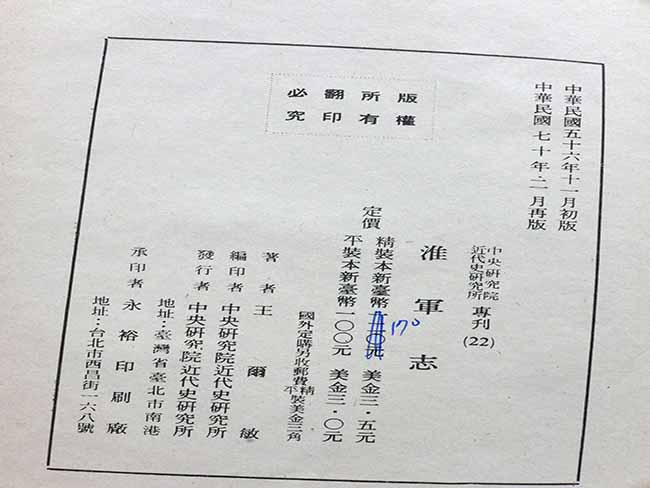 中華民國五十六年十一月初版
中華民國七十年·二月再版
版權
所有
翻印
必究
中央研究院
近代史研究所 專刊 (22)
淮軍志
定價 精裝本新臺幣 元 美金三·五元
170
平裝本新臺幣一〇〇元 美金三·〇元
國外定購另收郵費精平裝美金三角
著者 王爾敏
編印者 中央研究院近代史研究所
發行者 中央研究院近代史研究所
地址:臺灣省臺北市南港
承印者 永裕印刷廠
地址:台北市西昌街一六八號